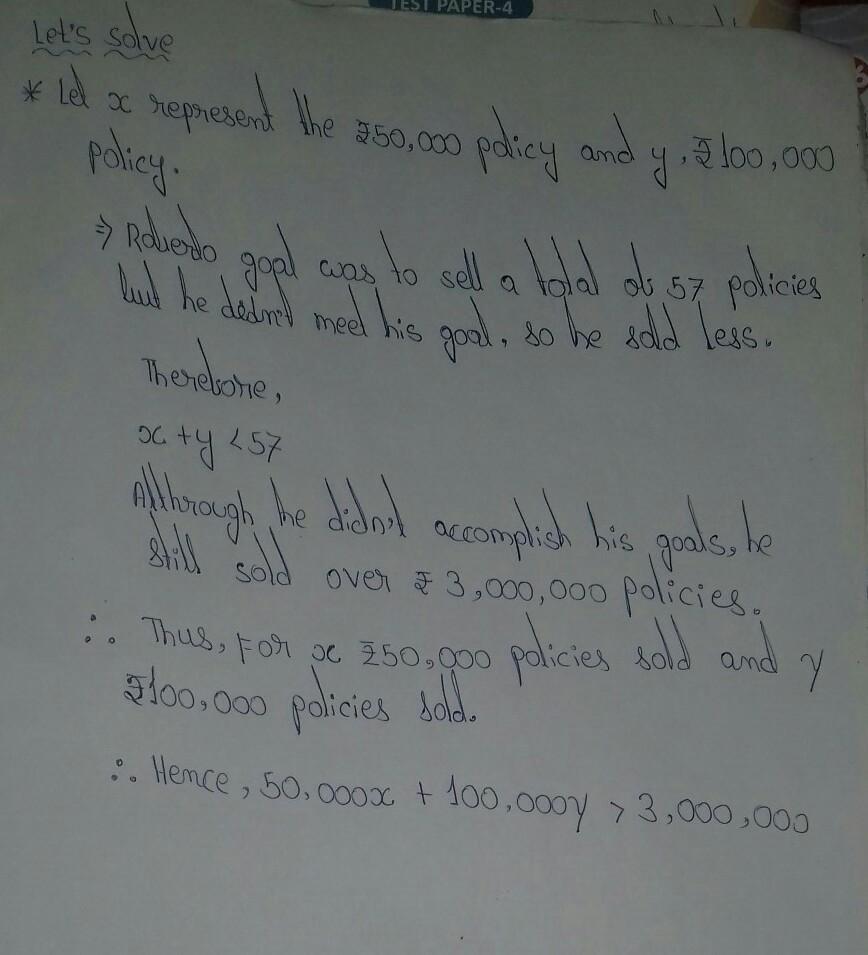 TEST PAPER-4
Let's solve
* Let x represent the ₹50,000 policy and y, ₹100,000
policy.
⇒ Roberto goal was to sell a total of 57 policies
but he didn't meet his goal, so he sold less.
Therefore,
x + y < 57
Allthrough he didn't accomplish his goals, he
still sold over ₹ 3,000,000 policies.
∴ Thus, For x ₹50,000 policies sold and y
₹100,000 policies sold.
∴ Hence, 50,000x + 100,000y > 3,000,000